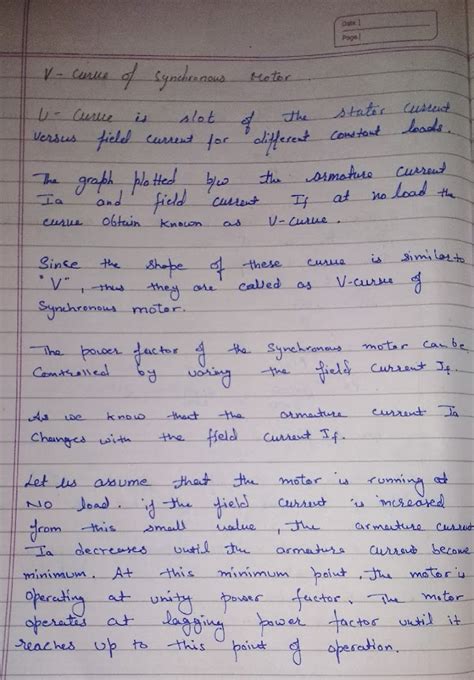 Date |
Page |
V - Curve of Synchronous Motor.
V - Curve is slot of the stator current
versus field current for different constant loads.
The graph plotted b/w the armature current
Ia and field current If at no load the
curve obtain known as V-curve.
Since the shape of these curve is similar to
"V", thus they are called as V-curve of
Synchronous motor.
The power factor of the synchronous motor can be
Controlled by varing the field current If.
As we know that the armature current Ia
changes with the field current If.
Let us assume that the motor is running at
NO load. if the field current is increased
from this small value, the armature current
Ia decreases until the armature current become
minimum. At this minimum point, the motor is
operating at unity power factor. The motor
operates at lagging power factor until it
reaches up to this point of operation.